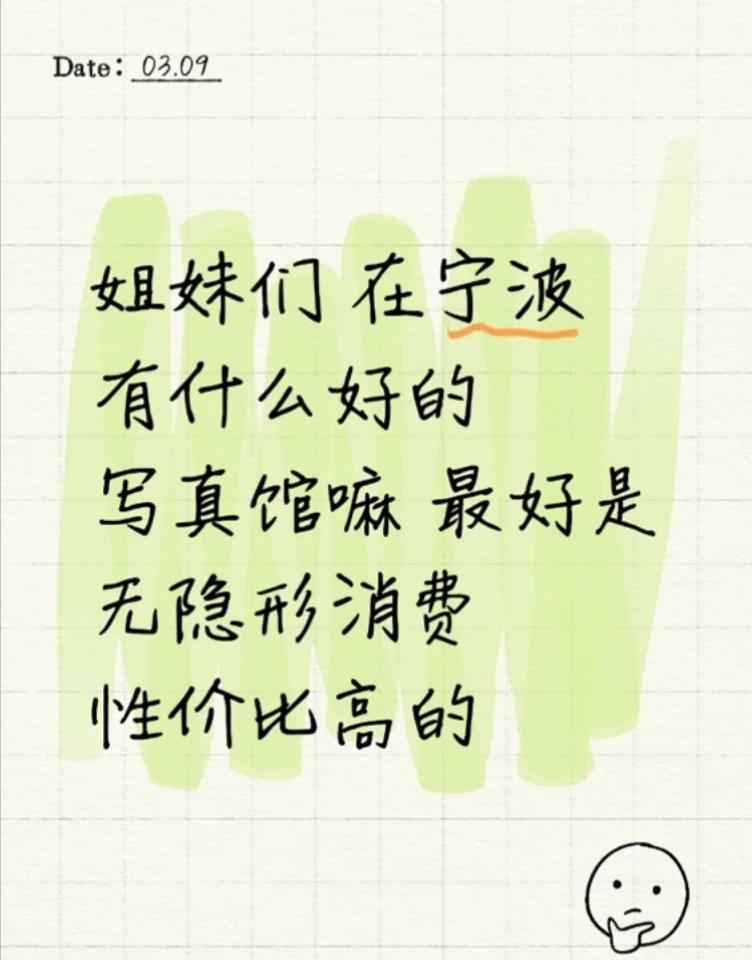 Date: 03.09
姐妹们 在宁波
有什么好的
写真馆嘛 最好是
无隐形消费
性价比高的